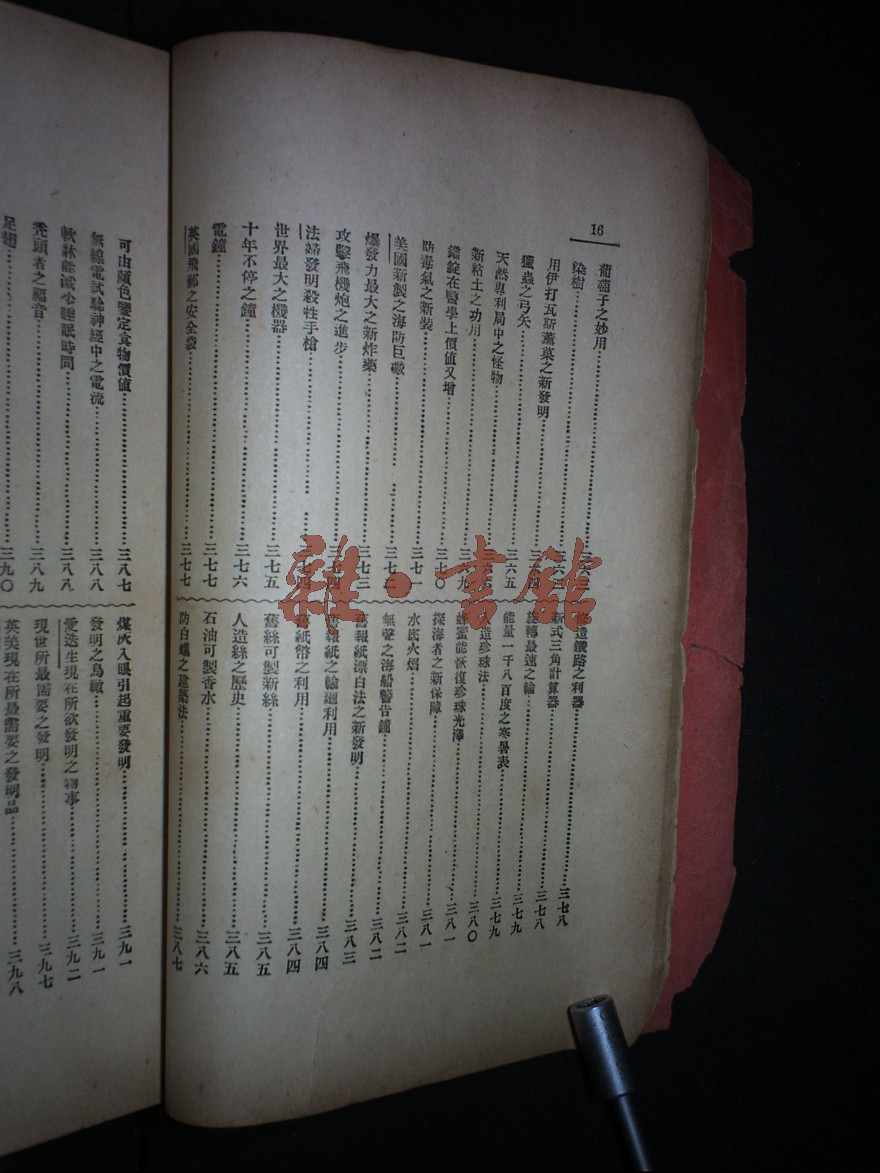 16
葡萄子之妙用
染樹
用伊打瓦斯薰菓之新發明
獵蟲之弓矢……三六五
天然專利局中之怪物
新粘土之功用
鐳錠在醫學上價值又增……三七〇
防毒氣之新裝……三七一
美國新製之海防巨礮……三七二
爆發力最大之新炸藥……三七三
攻擊飛機炮之進步……三七四
法婦發明殺牲手槍……三七四
世界最大之機器……三七五
十年不停之鐘……三七六
電鐘……三七七
英國飛郵之安全袋……三七七
造鐵路之利器……三七八
新式三角計算器……三七八
旋轉最速之輪……三七九
能量一千八百度之寒暑表……三七九
人造珍珠法……三八〇
蜂蜜能恢復珍珠光澤……三八一
探海者之新保障……三八一
水底火焰……三八二
無聲之海船警告鐘……三八二
舊報紙漂白法之新發明……三八三
舊報紙之輪迴利用……三八四
舊紙幣之利用……三八四
舊絲可製新絲……三八五
人造絲之歷史……三八五
石油可製香水……三八六
防白蟻之建築法……三八七
可由顏色鑒定食物價值……三八七
無線電試驗神經中之電流……三八八
軟牀能減少睡眠時間……三八八
禿頭者之福音……三八九
足翅……三九〇
煤灰入眼引起重要發明……三九一
發明之鳥瞰……三九一
愛迭生現在所欲發明之物事……三九二
現世所最需要之發明……三九七
英美現在所最需要之發明品……三九八
雜·書館